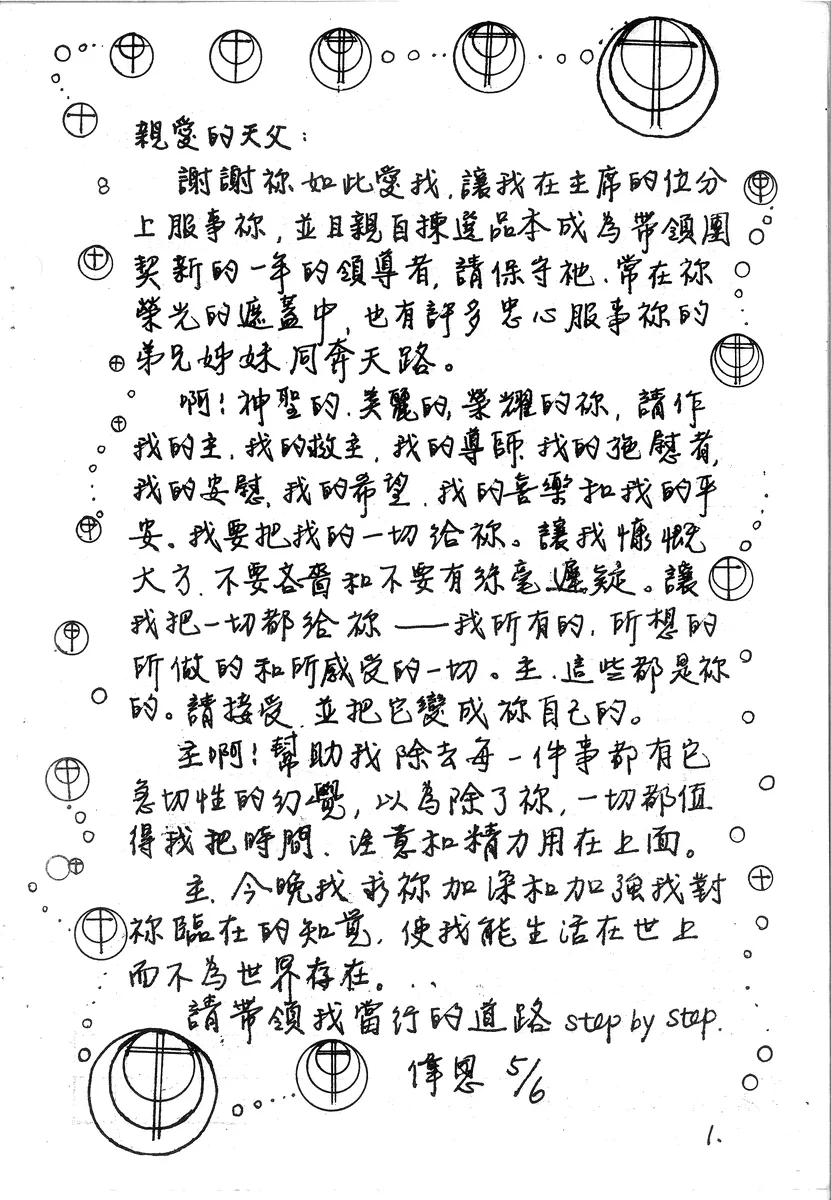 親愛的天父：
謝謝祢如此愛我，讓我在主席的位分
上服事祢，並且親自揀選品本成為帶領團
契新的一年的領導者，請保守祂、常在祢
榮光的遮蓋中，也有許多忠心服事祢的
弟兄姊妹同奔天路。
啊！神聖的、美麗的，榮耀的祢，請作
我的主、我的救主、我的導師、我的施慰者，
我的安慰、我的希望、我的喜樂和我的平
安。我要把我的一切給祢。讓我慷慨
大方、不要吝嗇和不要有絲毫遲疑。讓
我把一切都給祢——我所有的、所想的
所做的和所感受的一切。主、這些都是祢
的。請接受，並把它變成祢自己的。
主啊！幫助我除去每一件事都有它
急切性的幻覺，以為除了祢，一切都值
得我把時間、注意和精力用在上面。
主、今晚我求祢加深和加強我對
祢臨在的知覺，使我能生活在世上
而不為世界存在。..
請帶領我當行的道路 step by step.
偉恩 5/6
1.